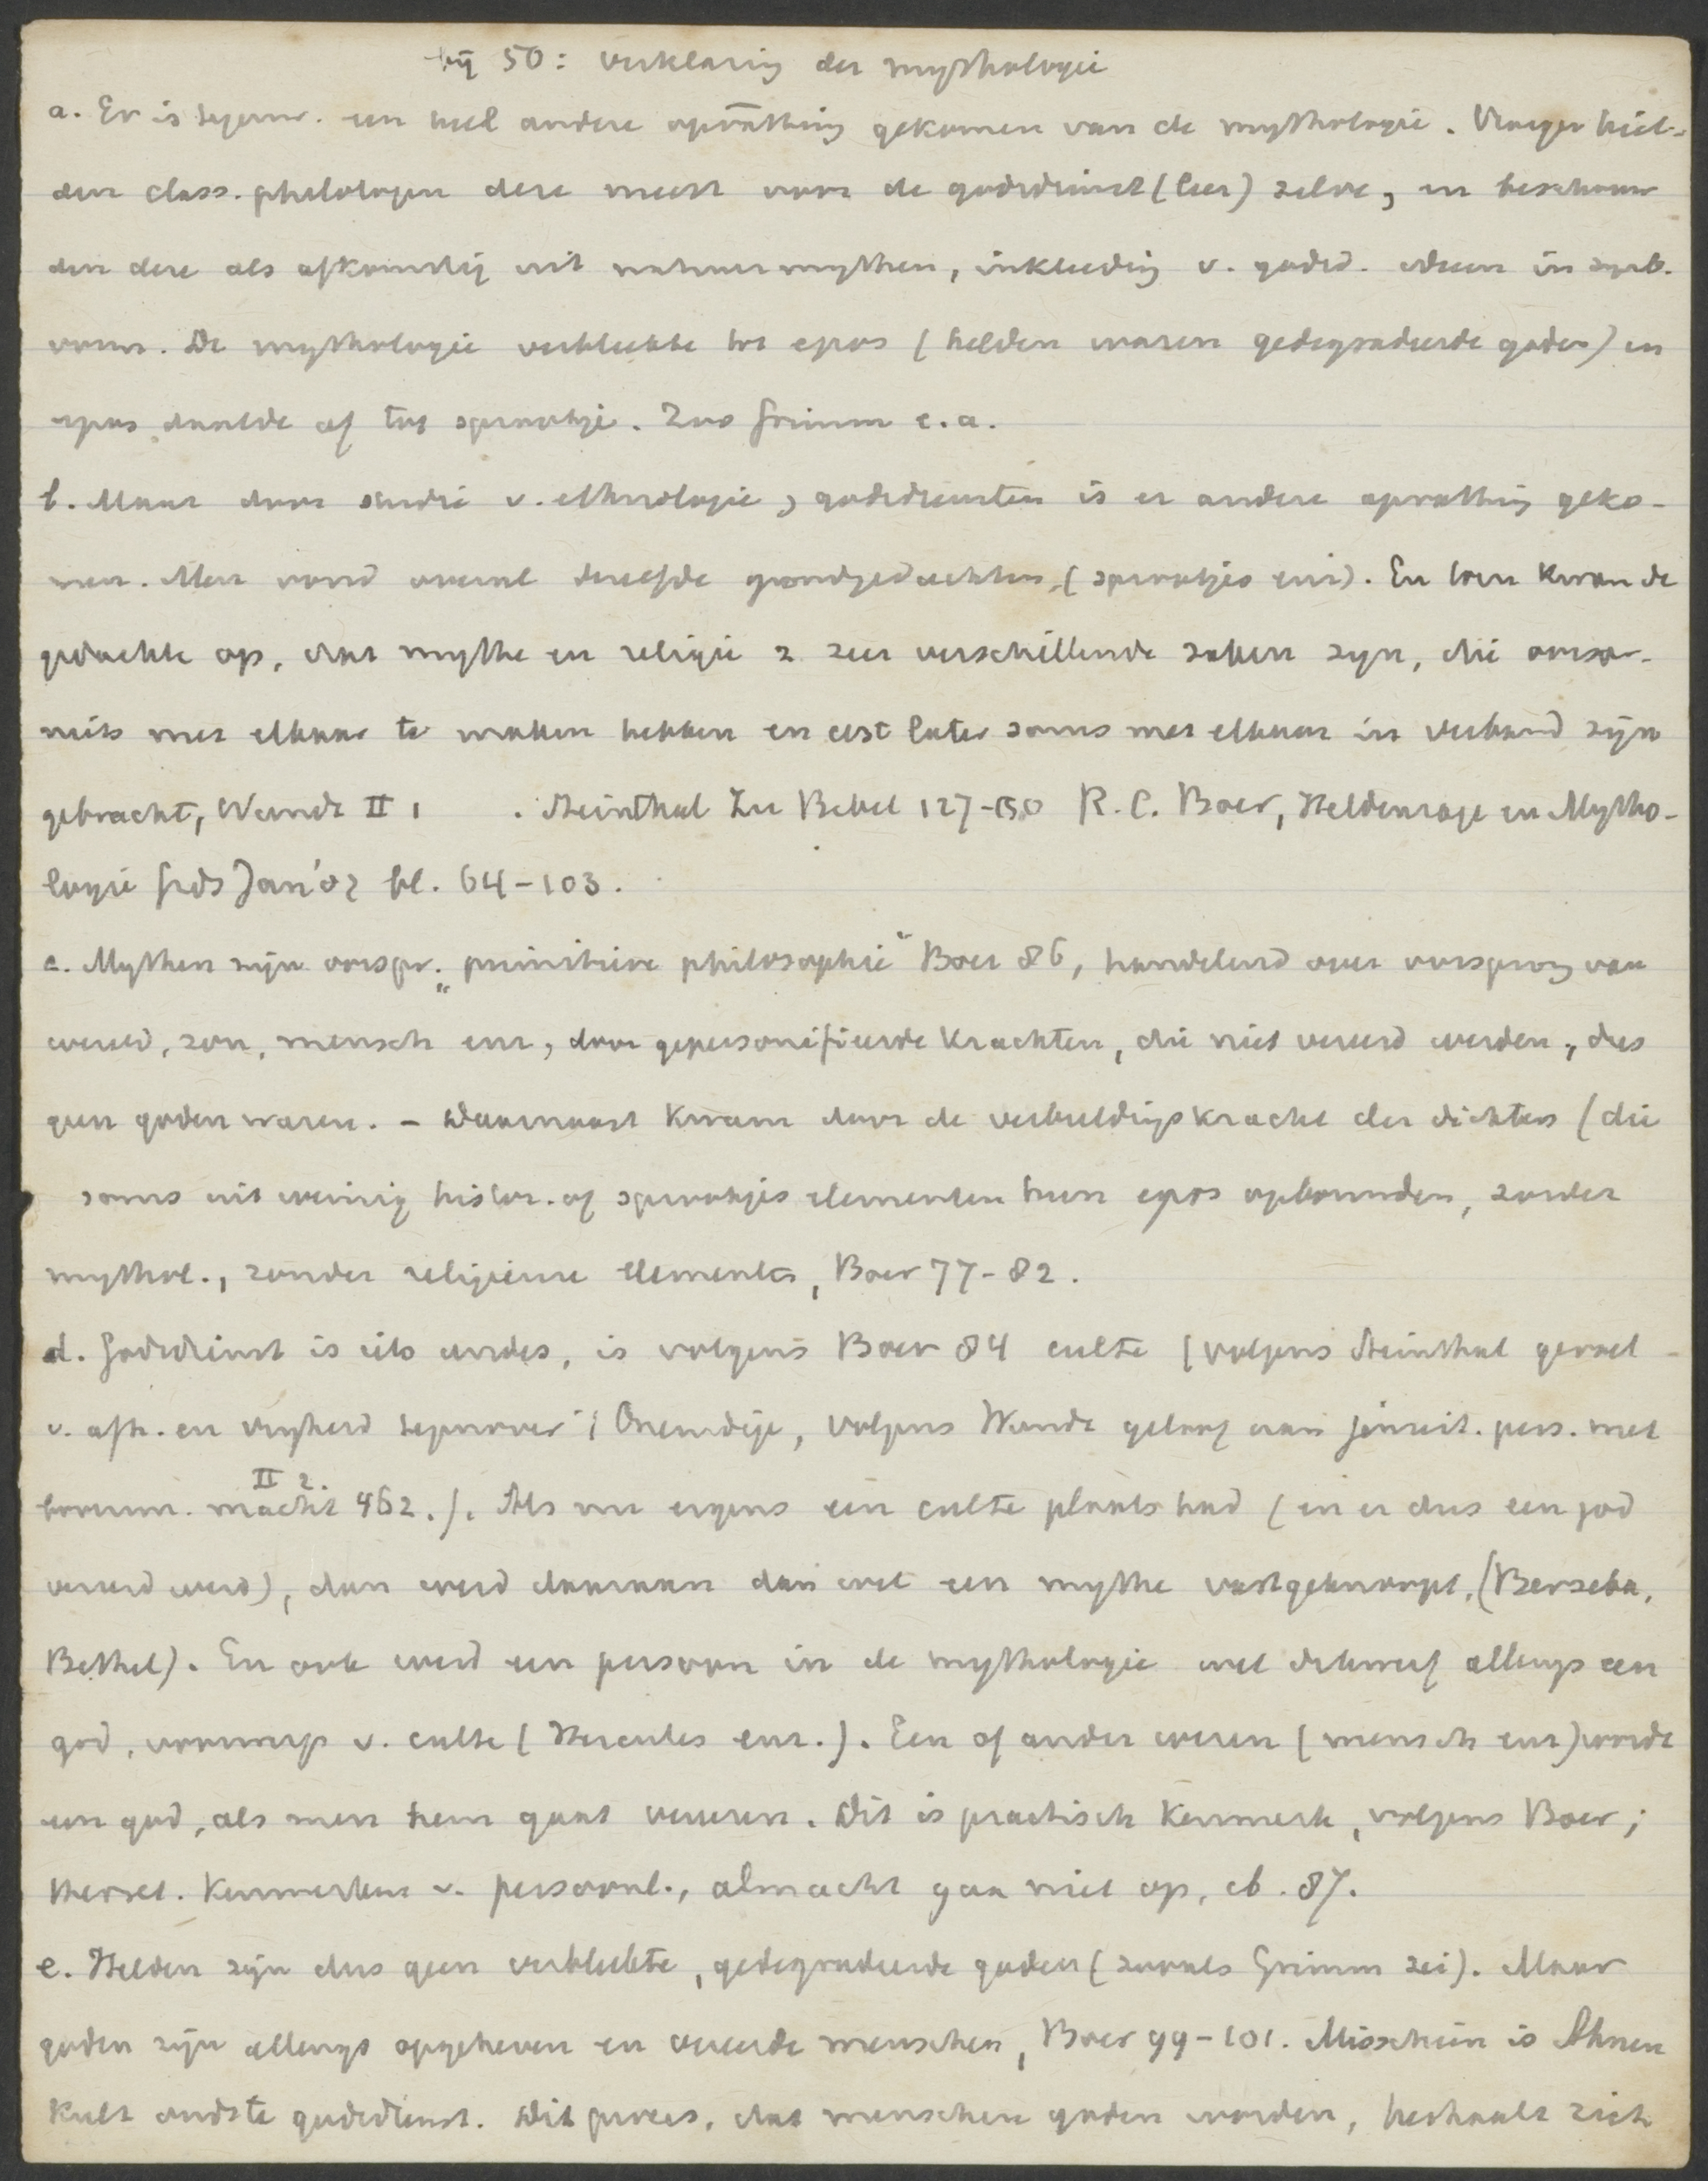 bij 50: verklaring der mythologie
a. Er is tegenw. een heel andere opvatting gekomen van de mythologie. Vroeger hiel-
den class. philologen deze meest voor de godsdienst (leer) zelve, en beschouw
den deze als afkomstig uit natuurmythen, inkleeding v. godsd. ideeen in symb.
vorm. De mythologie verbleekte tot epos (helden waren gedegradeerde goden) en
epos daalde af tot sprookje. Zoo Grimm e.a.
b. Maar door studie v. ethnologie, godsdiensten is er andere opvatting geko-
men. Men vond overal dezelfde grondgedachten, (sprookjes enz). En toen kwam de
gedachte op, dat mythe en religie 2 zeer verschillende zaken zyn, die oorspr.
niets met elkaar te maken hebben en eerst later soms met elkaar in verband zijn
gebracht, Wundt II 1 . Steinthal Zu Bibel 127-150 R.C. Boer, Heldensage en Mytho-
logie Gids Jan '02 bl. 64-103.
c. Mythen zijn oorspr. „primitieve philosophie" Boer 86, handelend over oorsprong van
wereld, zon, mensch enz, door gepersonifieerde krachten, die niet vereerd werden, dus
geen goden waren. - Daarnaast kwam door de verbeeldingskracht der dichters (die
soms uit weinig histor. of sprookjes elementen hun epos opbouwden, zonder
mythol., zonder religieuse elementen, Boer 77-82.
d. Godsdienst is iets anders, is volgens Boer 84 culte (volgens Steinthal gevoel
v. afh. en vryheid tegenover 't Oneindige, volgens Wundt geloof aan pers. met
bovenm. macht II 2. 462.). Als nu ergens een culte plaats had (en er dus een god
vereerd werd), dan werd daaraan dan wel een mythe vastgeknoopt, (Berseba,
Bethel). En ook werd een persoon in de mythologie wel dikwerf allengs een
god, voorwerp v. culte (Hercules enz.). Een of ander wezen (mensch enz) wordt
een god, als men hem gaat vereeren. Dit is practisch kenmerk, volgens Boer;
theoret. kenmerken v. persoonl., almacht gaan niet op, ib. 87.
e. Helden zijn dus geen verbleekte, gedegradeerde goden (zooals Grimm zei). Maar
goden zijn allengs opgeheven en vereerde menschen, Boer 99-101. Misschien is Ahnen
Kult oudste godsdienst. Dit proces, dat menschen goden worden, herhaalt zich